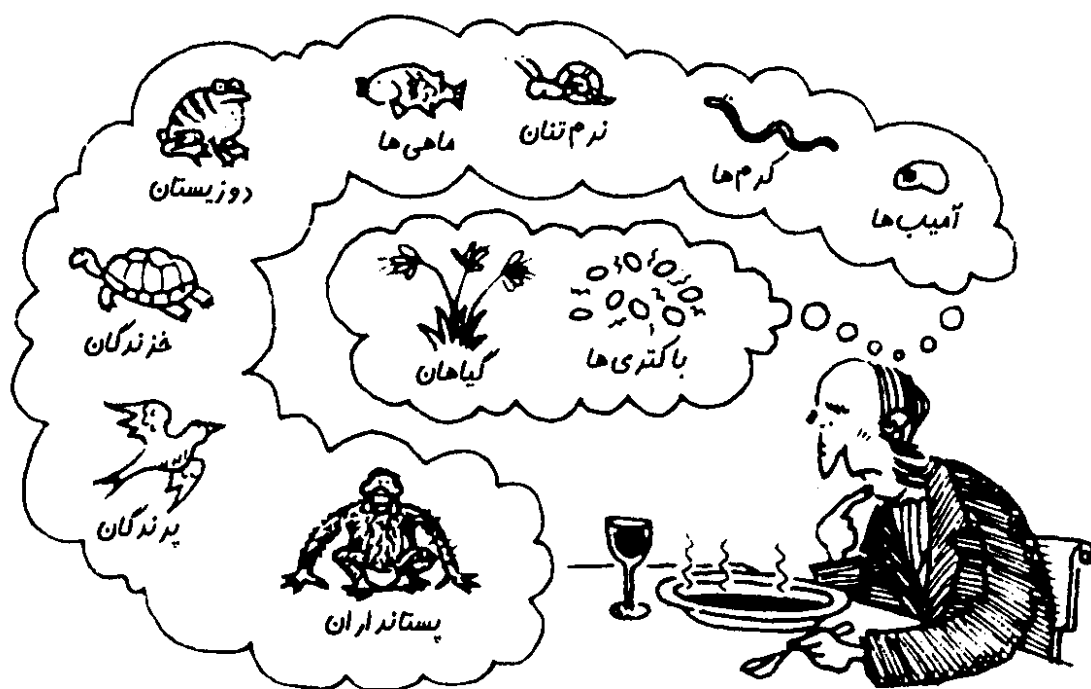 آمیب‌ها
کرم‌ها
نرم تنان
ماهی‌ها
دوزیستان
خزندگان
پرندگان
پستانداران
باکتری‌ها
گیاهان